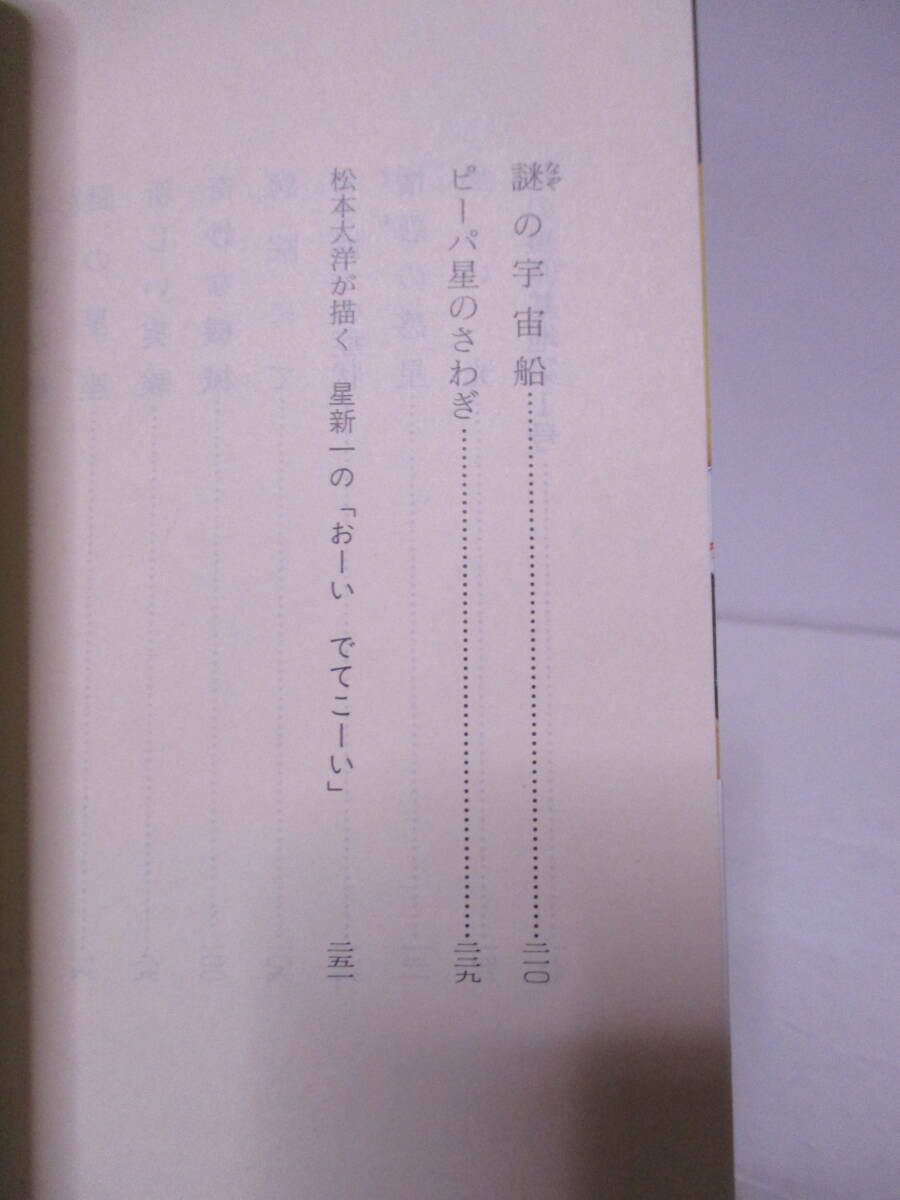 謎の宇宙船……二一〇
ピーパ星のさわぎ……二二九
松本大洋が描く 星新一の「おーい でてこーい」 二五一